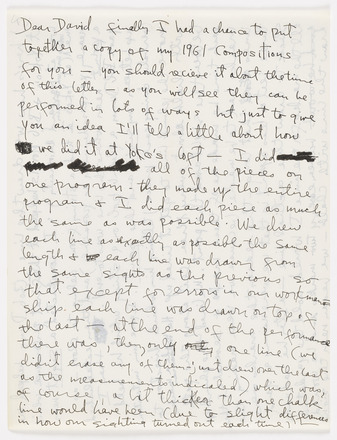 Dear David finally I had a chance to put
together a copy of my 1961 Compositions
for you – you should recieve it about the time
of this letter – as you will see they can be
performed in lots of ways but just to give
you an idea I'll tell a little about how
we did it at Yoko's loft – I did
all of the pieces on
one program – they made up the entire
program & I did each piece as much
the same as was possible. We drew
each line as exactly as possible the same
length & each line was drawn from
the same sights as the previous so
that except for errors in our workman
ship each line was drawn on top of
the last – at the end of the performance
there was, then, only one line (we
didn't erase any of them – just drew over the last
as the measurements indicated) which was,
of course, a bit thicker than one chalk
line would have been (due to slight differences
in how our sighting turned out each time)